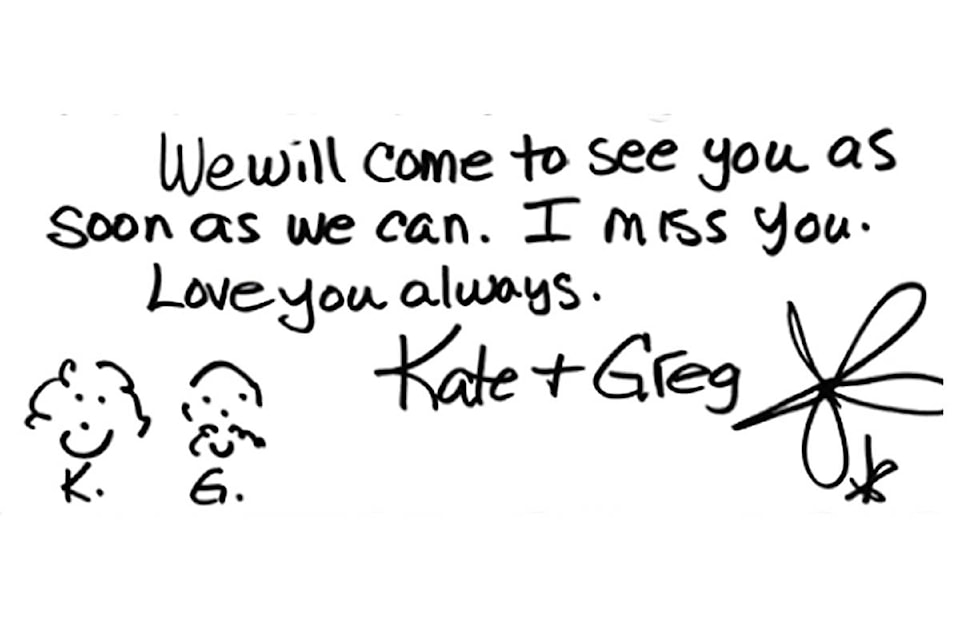 We will come to see you as
soon as we can. I miss you.
Love you always.
Kate + Greg
K. G.